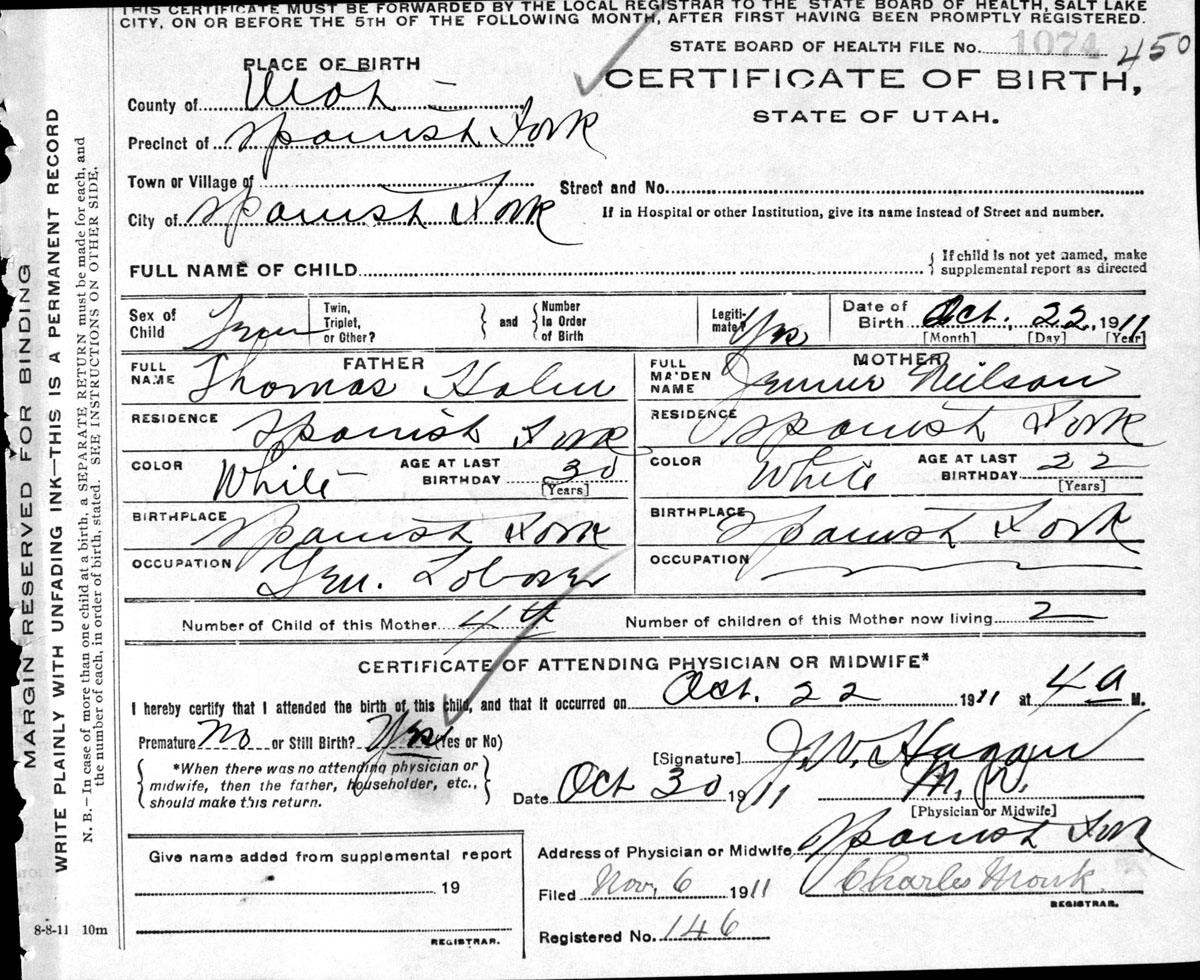 THIS CERTIFICATE MUST BE FORWARDED BY THE LOCAL REGISTRAR TO THE STATE BOARD OF HEALTH, SALT LAKE
CITY, ON OR BEFORE THE 5TH OF THE FOLLOWING MONTH, AFTER FIRST HAVING BEEN PROMPTLY REGISTERED.
STATE BOARD OF HEALTH FILE No. 1074 450
PLACE OF BIRTH
CERTIFICATE OF BIRTH,
STATE OF UTAH.
County of Utah
Precinct of Spanish Fork
Town or Village of
Street and No.
City of Spanish Fork
If in Hospital or other Institution, give its name instead of Street and number.
FULL NAME OF CHILD
If child is not yet named, make
supplemental report as directed
Sex of Child
Twin, Triplet, or Other?
and
Number In Order of Birth
Legiti-mate? Yes
Date of Birth Oct. 22, 1911
[Month] [Day] [Year]
FATHER
FULL NAME Thomas
MOTHER
FULL MAIDEN NAME Jennie Neilson
RESIDENCE Spanish Fork
RESIDENCE Spanish Fork
COLOR White AGE AT LAST BIRTHDAY 30 [Years]
COLOR White AGE AT LAST BIRTHDAY 22 [Years]
BIRTHPLACE Spanish Fork
BIRTHPLACE Spanish Fork
OCCUPATION Gen. Laborer
OCCUPATION
Number of Child of this Mother 4th
Number of children of this Mother now living 2
CERTIFICATE OF ATTENDING PHYSICIAN OR MIDWIFE*
I hereby certify that I attended the birth of this child, and that it occurred on Oct. 22 1911 at 4 a M.
Premature No or Still Birth? Yes (Yes or No)
*When there was no attending physician or
midwife, then the father, householder, etc.,
should make this return.
[Signature] J. W. Hagan
M. D.
Date Oct 30 1911
[Physician or Midwife]
Address of Physician or Midwife Spanish Fork
Give name added from supplemental report
19
REGISTRAR.
Filed Nov. 6 1911 Charles Monk
REGISTRAR.
Registered No. 146
8-8-11 10m
MARGIN RESERVED FOR BINDING
WRITE PLAINLY WITH UNFADING INK—THIS IS A PERMANENT RECORD
N. B.—In case of more than one child at a birth, a SEPARATE RETURN must be made for each, and
the number of each, in order of birth, stated. SEE INSTRUCTIONS ON OTHER SIDE.